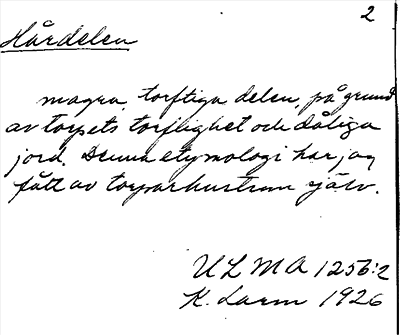 2
Hårdelen
magra, torftiga delen, på grund
av torpets torflighet och dåliga
jord. Denna etymologi har jag
fått av torparhustrun själv.
ULMA 1256:2
K. Larm 1926